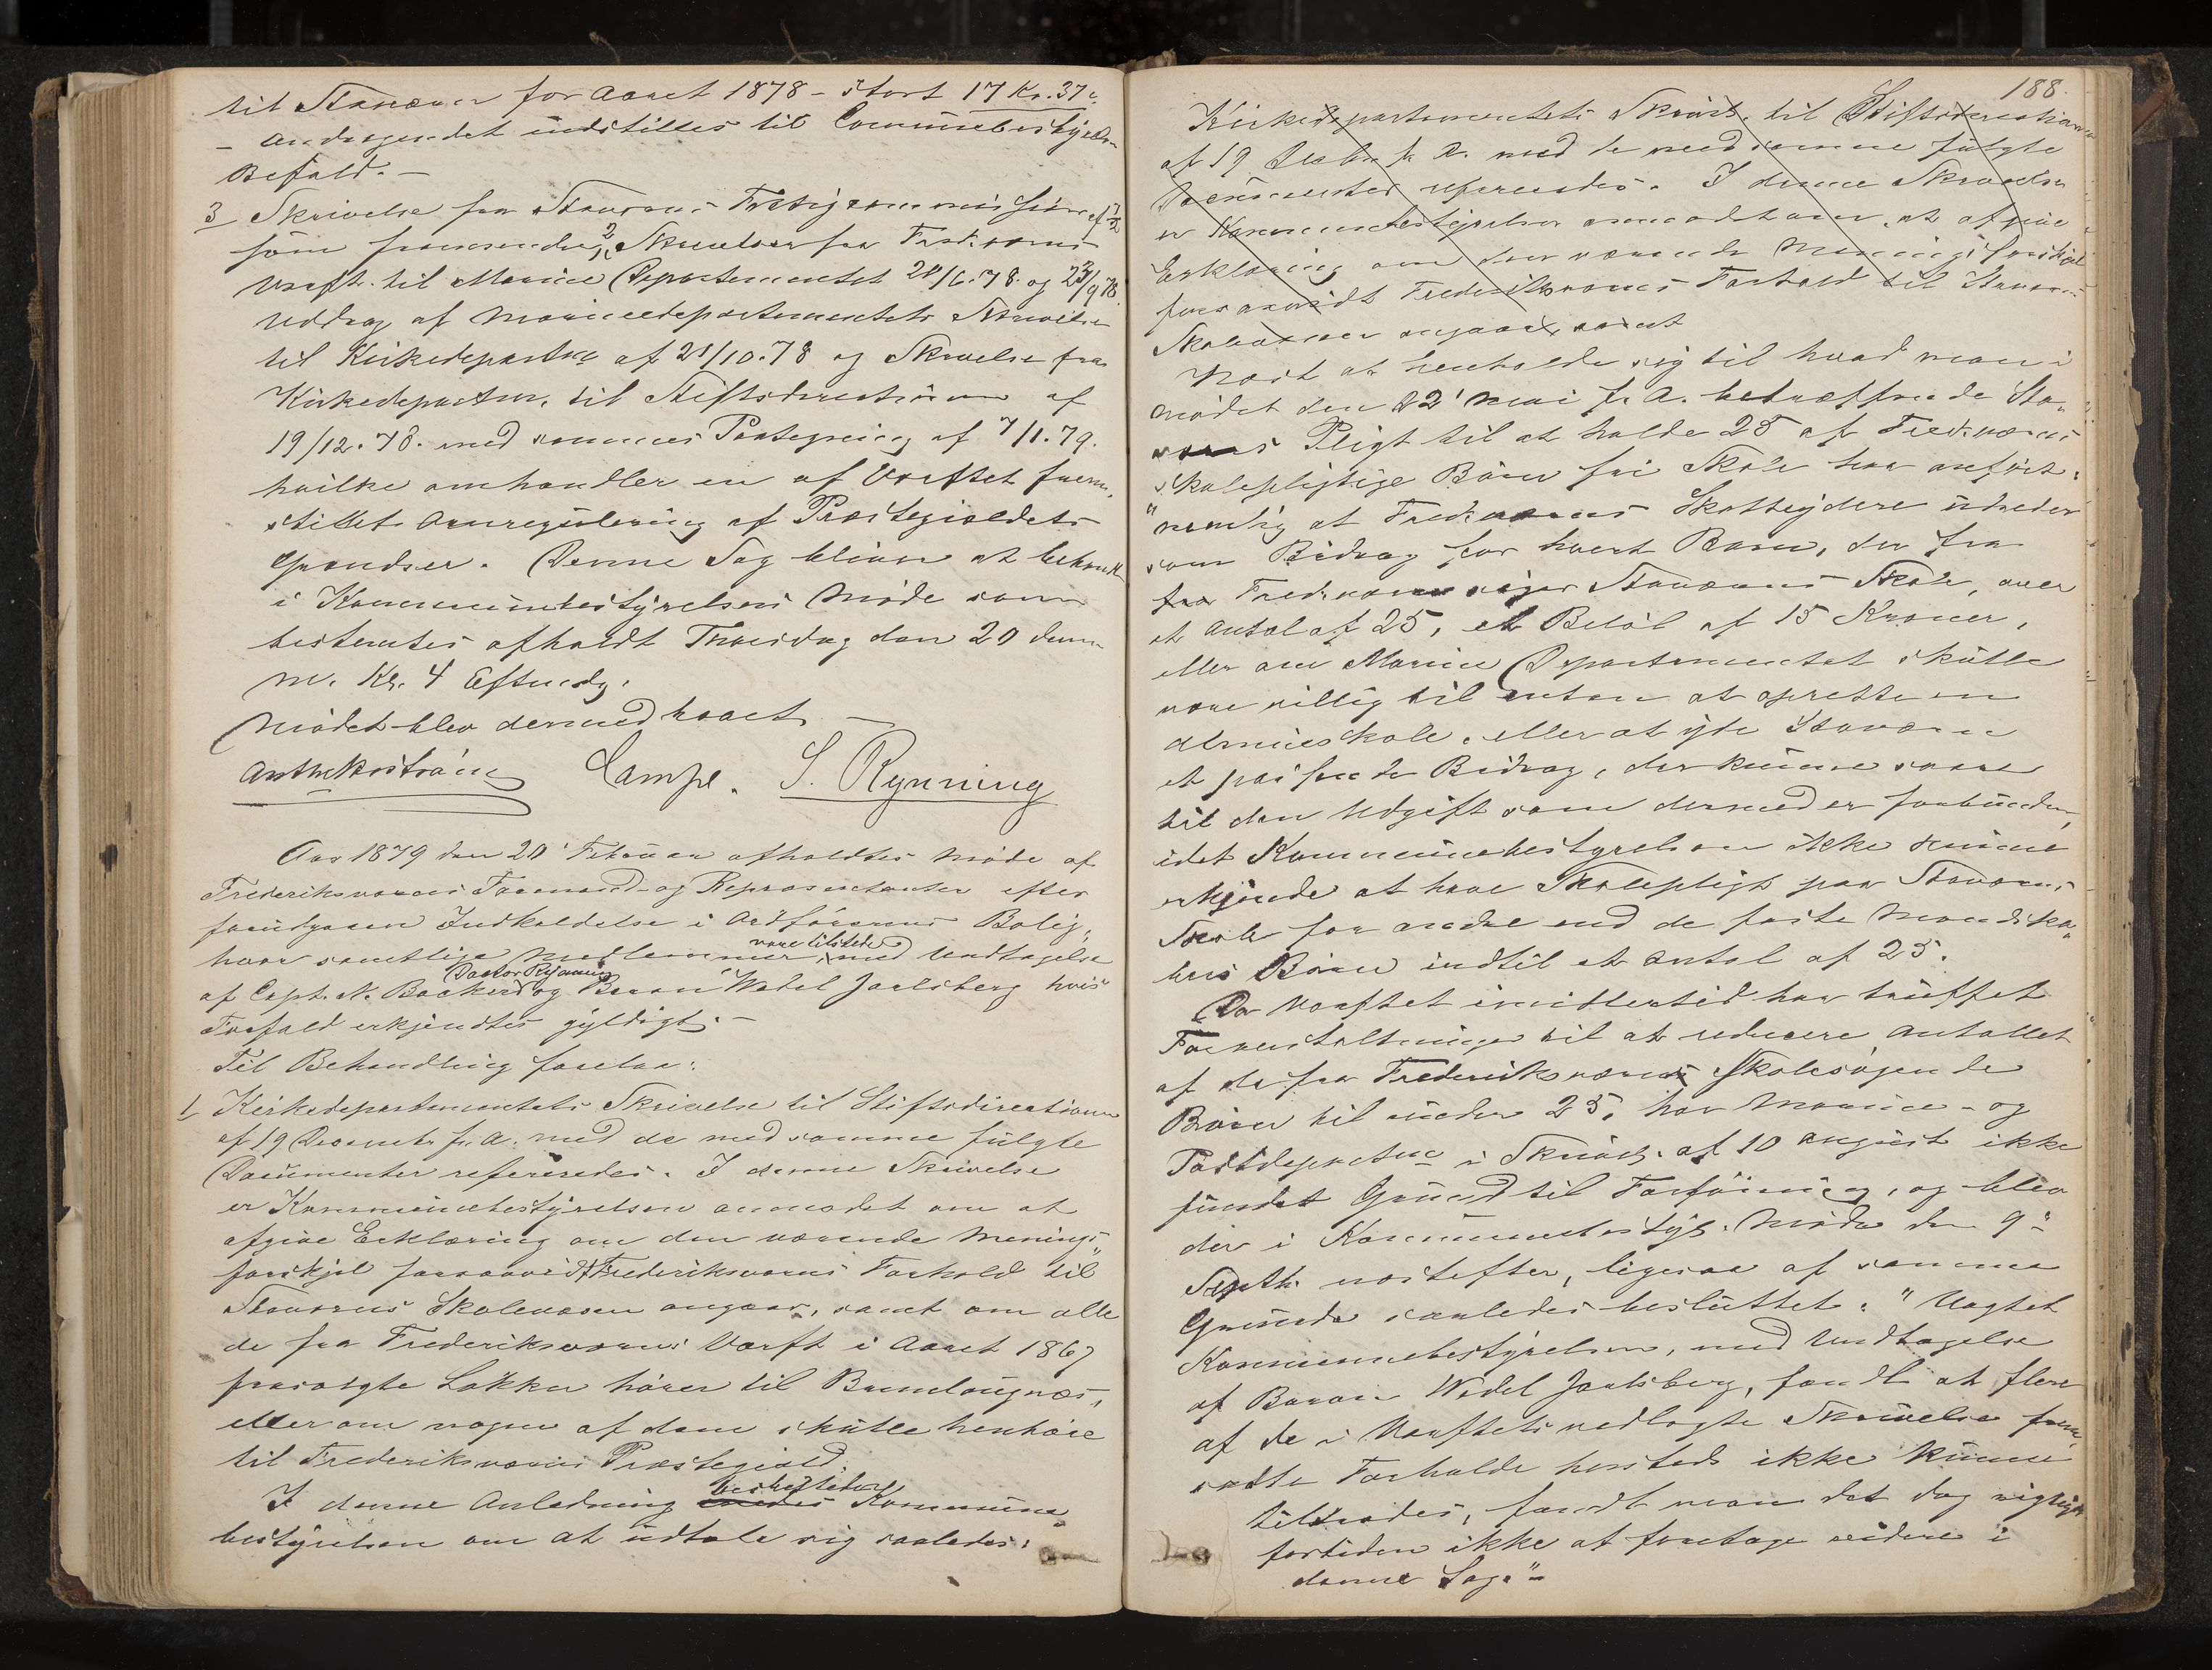 til Staværn for Aaret 1878 - stort 17 Kr. 37
- Andragendet indstilles til Communebestyrelsens
Bifald. -
3 Skrivelse fra Staværns
som fremsender 2 Skrivelser fra Fredr.værns
Værft til Marine Departementet 28/6.78 og 23/9 78.
Uddrag af Marinedepartementets Skrivelse
til Kirkedepartm. af 21/10.78 og Skrivelse fra
Kirkedepartm. til Stiftsdirectionen af
19/12.78. med sammes Paategning af 7/1.79.
hvilke omhandler en af Værftet frem-
stillet Omregulering af Præstegjeldets
Grændser. Denne Sag bliver at behandle
i Kommunebestyrelsens Møde som
bestemtes afholdt Thorsdag den 20 denne
M. Kl. 4 Eftmdg.
Mødet blev dermed hævet. -
Lampe. S. Rynning
Aar 1879 den 20' Februar afholdtes Møde af
Frederiksværns Formænd og Repræsentanter efter
forudgaaen Indkaldelse i Ordførerens Bolig,
hvor samtlige Medlemmer vare tilstede med Undtagelse
af Capt. N. Backer, Doctor Rynning og Baron Wedel Jarlsberg hvis
Forfald erkjendtes gyldigt. -
Til Behandling forelaa:
1 Kirkedepartementets Skrivelse til Stiftsdirectionen
af 19 Decembr f. A. med de med samme fulgte
Documenter refereredes. I denne Skrivelse
er Kommunebestyrelsen anmodet om at
afgive Erklæring om den værende Menings-
forskjel forsaavidt Frederiksværns Forhold til
Staværns Skolevæsen angaar, samt om alle
de fra Frederiksværns Værft i Aaret 1867
frasolgte Løkker hører til Brunlaugnæs,
eller om nogen af dem skulle henhøre
til Frederiksværns Præstegjeld.
I denne Anledning besluttede Kommune-
bestyrelsen om at udtale sig saaledes:
188.
Kirkedepartementets Skriv. til Stiftsdirectionen
af 19 Decbr f. A. med de med samme fulgte
Documenter refereredes. I denne Skrivelse
er Kommunebestyrelsen anmodet om, at afgive
Erklæring om den værende Meningsforskjel
forsaavidt Frederiksværns Forhold til Staværns
Skolevæsen angaar, samt
Næst at henholde sig til hvad man i
Mødet den 22' Mai f. A. betræffende Sta-
værns Pligt til at holde 25 af Fredr.værns
skolepligtige Børn fri Skole har anført,
"nemlig at Fredr.værns Skatteydere udreder
som Bidrag for hvert Barn, der fra
fra Fredr.værn søger Staværns Skole, over
et Antal af 25, et Beløb af 15 Kroner,
eller om Marine Departementet skulle
være villig til enten at oprette en
Almueskole, eller at yde Staværn
et passende Bidrag, der kunne svare
til den Udgift som dermed er forbunden,
idet Kommunebestyrelsen ikke kunne
erkjende at have Skolepligt paa Staværns
Skole for andre end de faste Mandska-
bers Børn indtil et Antal af 25.
Da Værftet imidlertid har truffet
Foranstaltninger til at reducere Antallet
af de fra Frederiksværn Skolesøgende
Børn til under 25, har Marine- og
Postdepartm i Skriv. af 10 August ikke
fundet Grund til Forføining, og blev
der i Kommunebestyr. Møde den 9'
Septb. næstefter, ligesaa af samme
Grunde saaledes besluttet: "Uagtet
Kommunebestyrelsen, med Undtagelse
af Baron Wedel Jarlsberg, fandt at flere
af de i Værftets vedlagte Skrivelse frem-
satte Forholde hersteds ikke kunne
tiltrædes, fandt man det dog rigtigst
fortiden ikke at foretage videre i
denne Sag."-